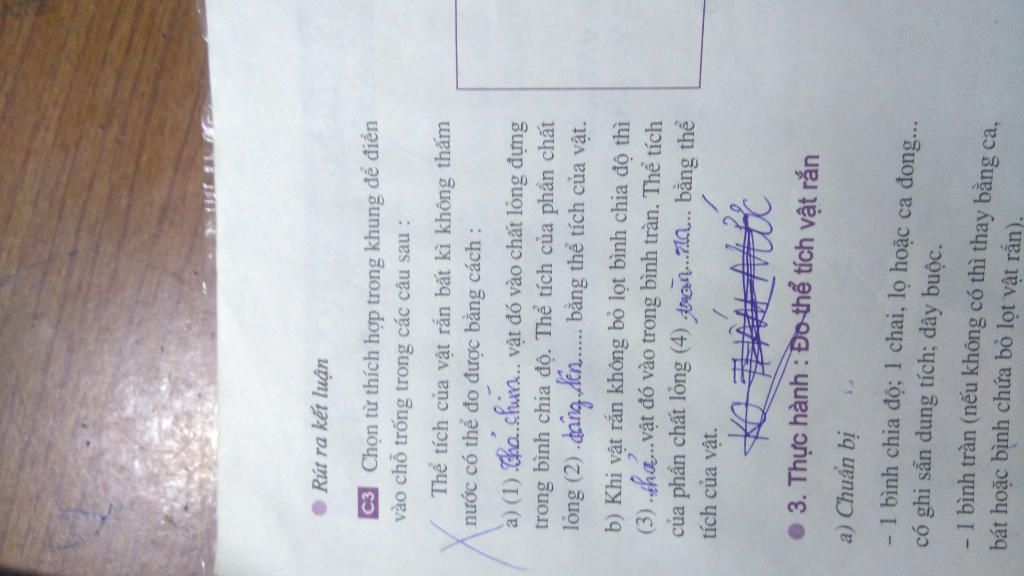 Rút ra kết luận
C3 Chọn từ thích hợp trong khung để điền
vào chỗ trống trong các câu sau :
Thể tích của vật rắn bất kì không thấm
nước có thể đo được bằng cách :
a) (1) thả...chìm... vật đó vào chất lỏng đựng
trong bình chia độ. Thể tích của phần chất
lỏng (2) .dâng..lên...... bằng thể tích của vật.
b) Khi vật rắn không bỏ lọt bình chia độ thì
(3) .thả....vật đó vào trong bình tràn. Thể tích
của phần chất lỏng (4) .tràn...ra... bằng thể
tích của vật.
3. Thực hành : Đo thể tích vật rắn
a) Chuẩn bị
– 1 bình chia độ; 1 chai, lọ hoặc ca đong...
có ghi sẵn dung tích; dây buộc.
– 1 bình tràn (nếu không có thì thay bằng ca,
bát hoặc bình chứa bỏ lọt vật rắn).